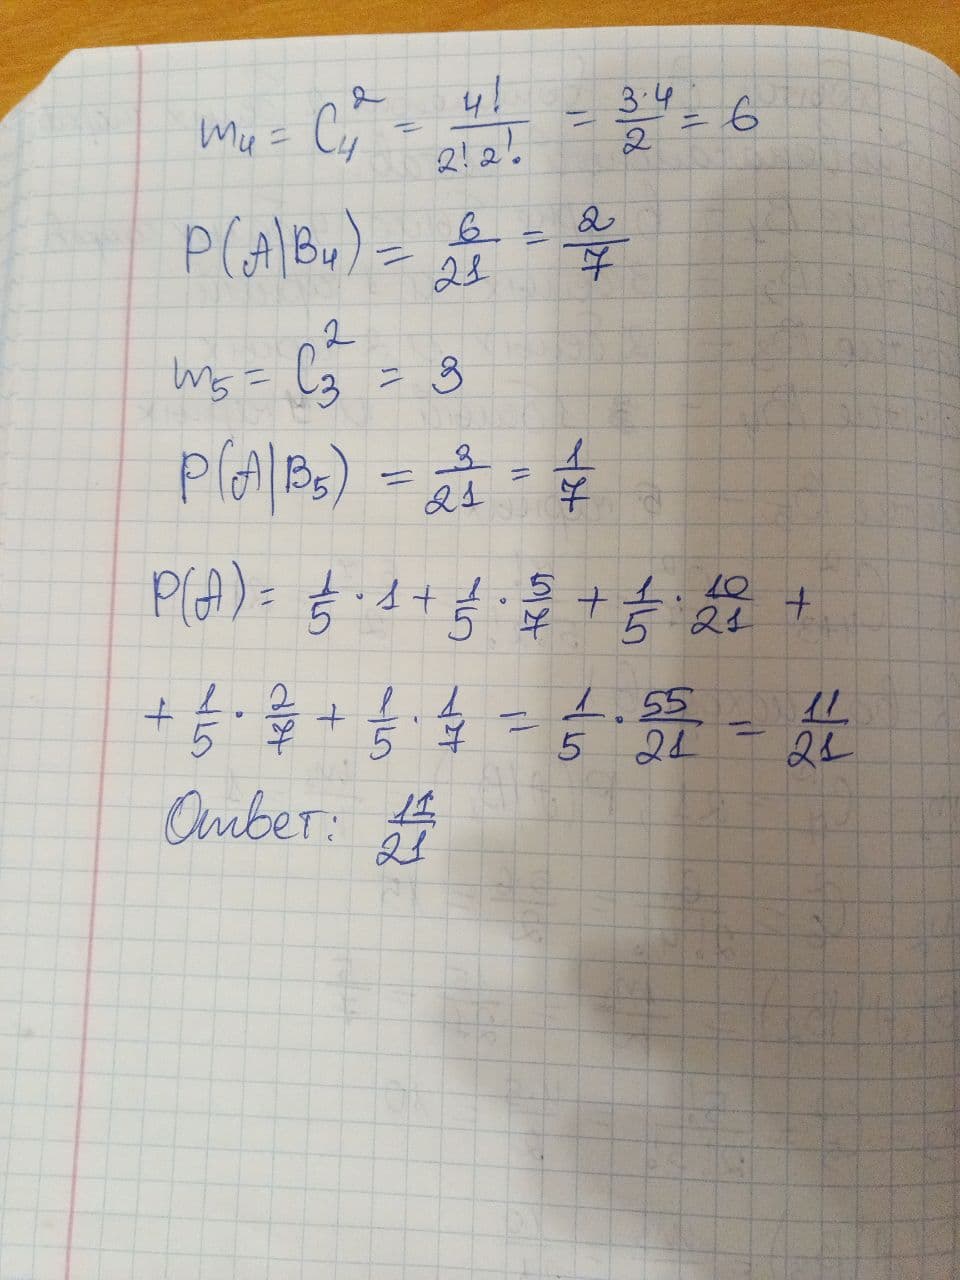 m₄ = C₄² = 4!/(2! 2!) = 3·4/2 = 6
P(A|B₄) = 6/21 = 2/7
m₅ = C₃² = 3
P(A|B₅) = 3/21 = 1/7
P(A) = 1/5 · 1 + 1/5 · 5/7 + 1/5 · 10/21 +
+ 1/5 · 2/7 + 1/5 · 1/7 = 1/5 · 55/21 = 11/21
Ответ: 11/21